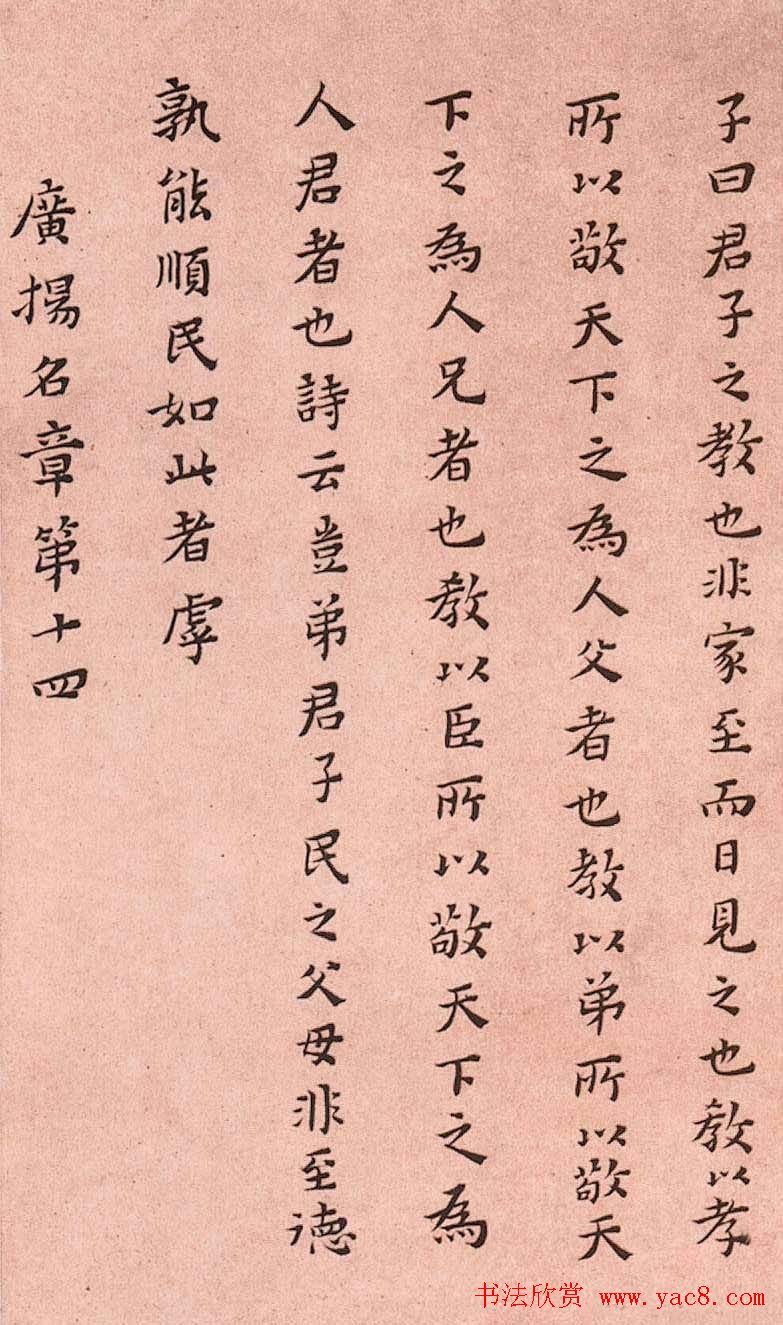 子曰君子之教也非家至而日見之也教以孝
所以敬天下之為人父者也教以弟所以敬天
下之為人兄者也教以臣所以敬天下之為
人君者也詩云豈弟君子民之父母非至德
孰能順民如此者虖
廣揚名章第十四
书法欣赏 www.yac8.com